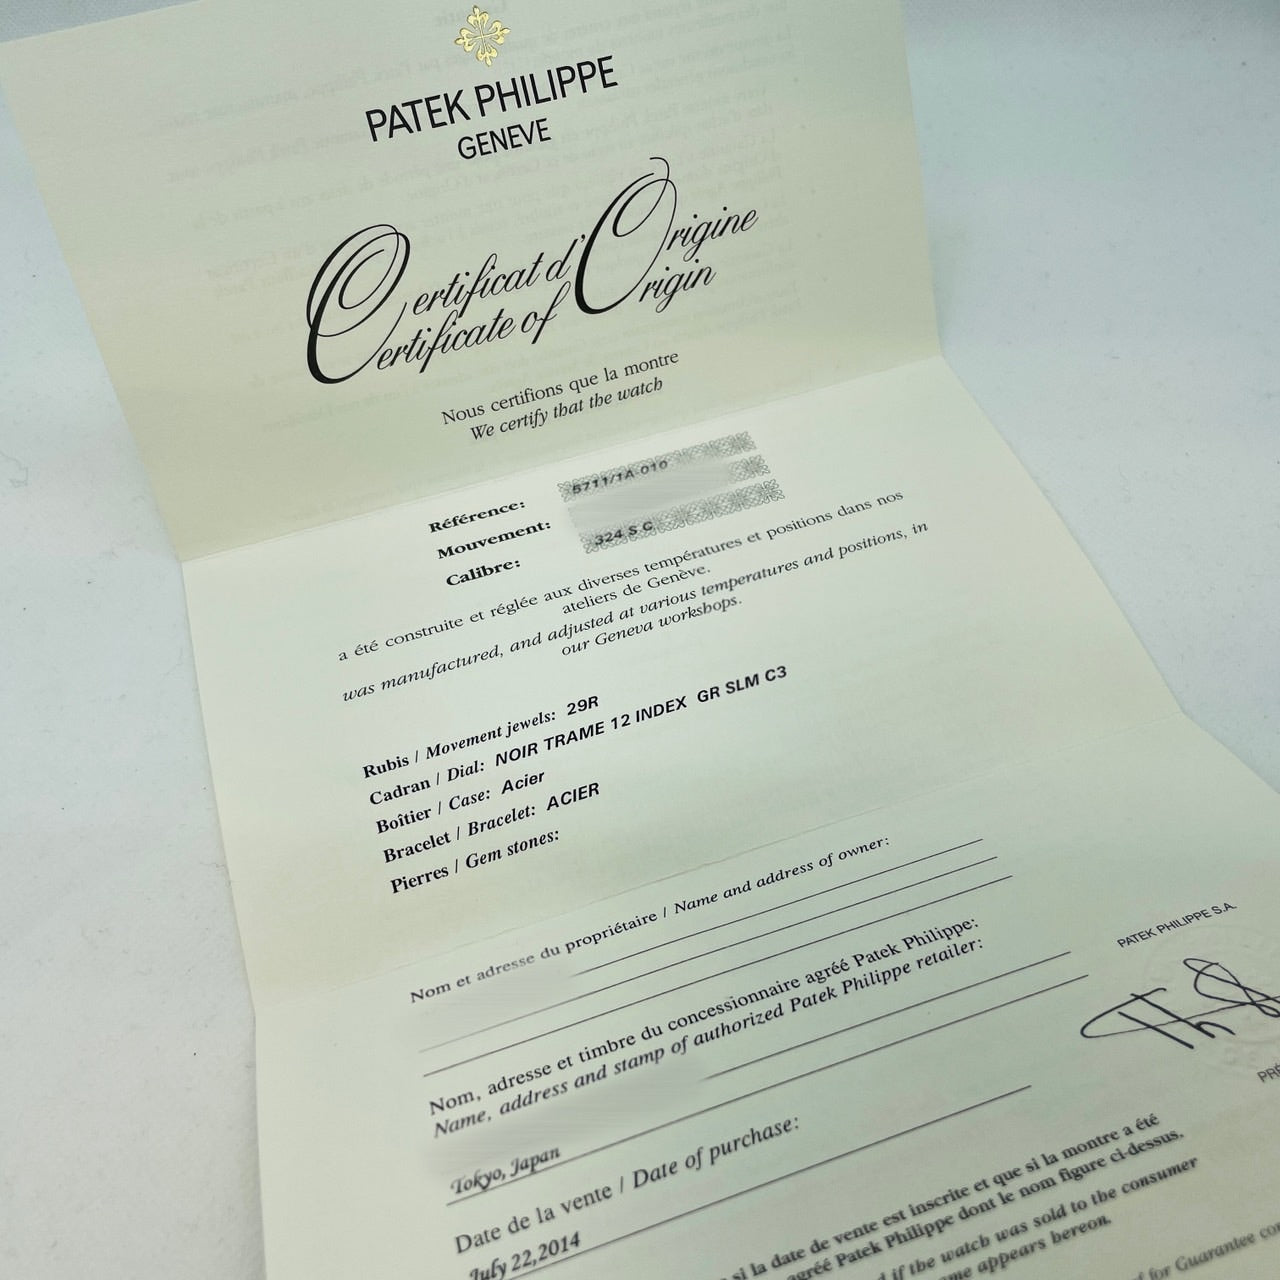 PATEK PHILIPPE
GENEVE
Certificat d'Origine
Certificate of Origin
Nous certifions que la montre
We certify that the watch
Référence: 5711/1A-010
Mouvement:
Calibre: 324 S C
a été construite et réglée aux diverses températures et positions dans nos
ateliers de Genève.
was manufactured, and adjusted at various temperatures and positions, in
our Geneva workshops.
Rubis / Movement jewels: 29R
Cadran / Dial: NOIR TRAME 12 INDEX GR SLM C3
Boîtier / Case: Acier
Bracelet / Bracelet: ACIER
Pierres / Gem stones:
Nom et adresse du propriétaire / Name and address of owner:
PATEK PHILIPPE S.A.
Nom, adresse et timbre du concessionnaire agréé Patek Philippe:
Name, address and stamp of authorized Patek Philippe retailer:
Tokyo, Japan
Date de la vente / Date of purchase:
July 22,2014
si la date de vente est inscrite et que si la montre a été
agréé Patek Philippe dont le nom figure ci-dessus.
if the watch was sold to the consumer
appears hereon.
for Guarantee